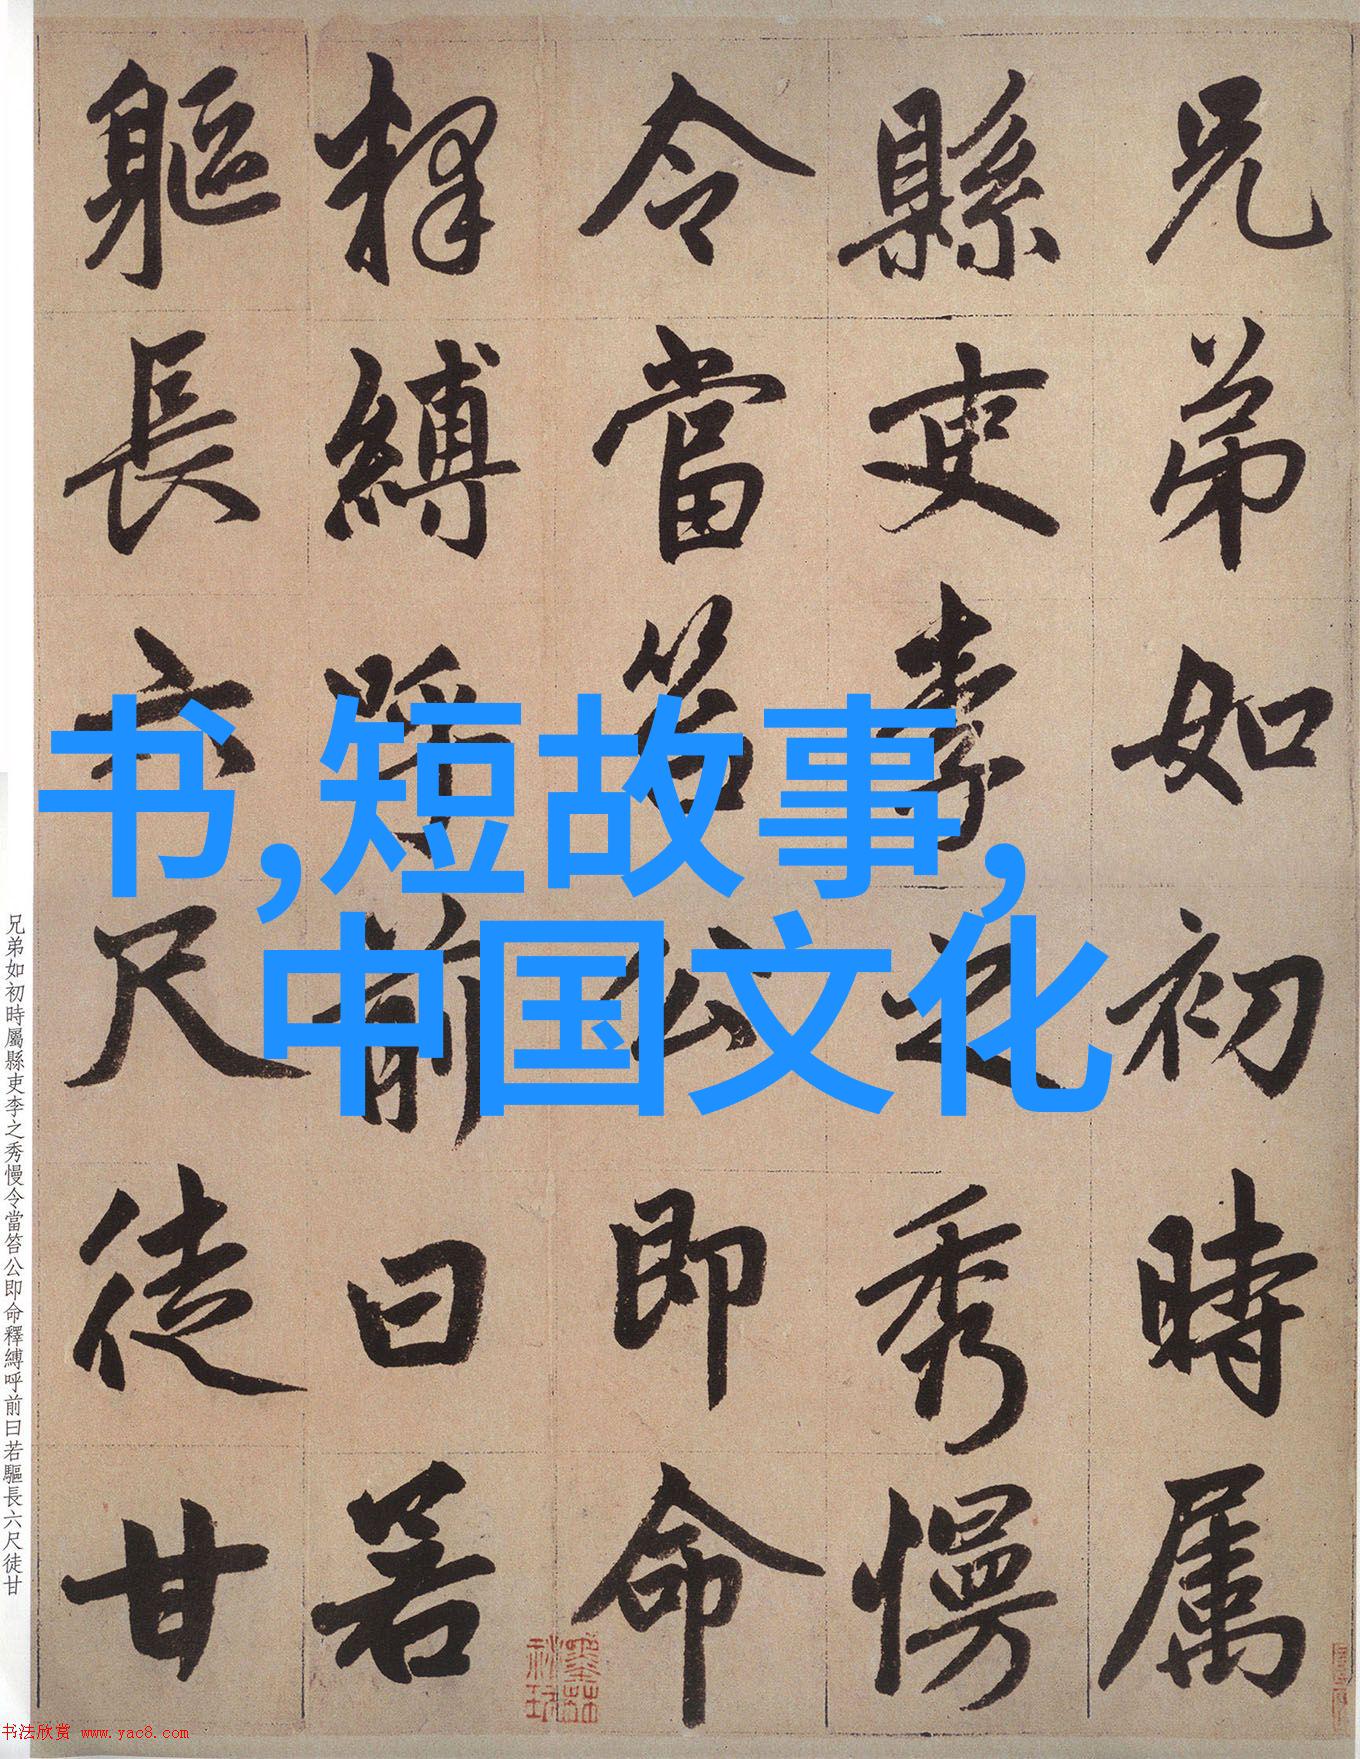 兄弟如初時属
縣吏李之秀慢
令當笞公即命
釋縛呼前曰若
軀長六尺徒甘
书,短故事,
中国文化
兄弟如初時屬縣吏李之秀慢令當笞公即命釋縛呼前曰若驅長六尺徒甘
书法欣赏 www.yac8.com